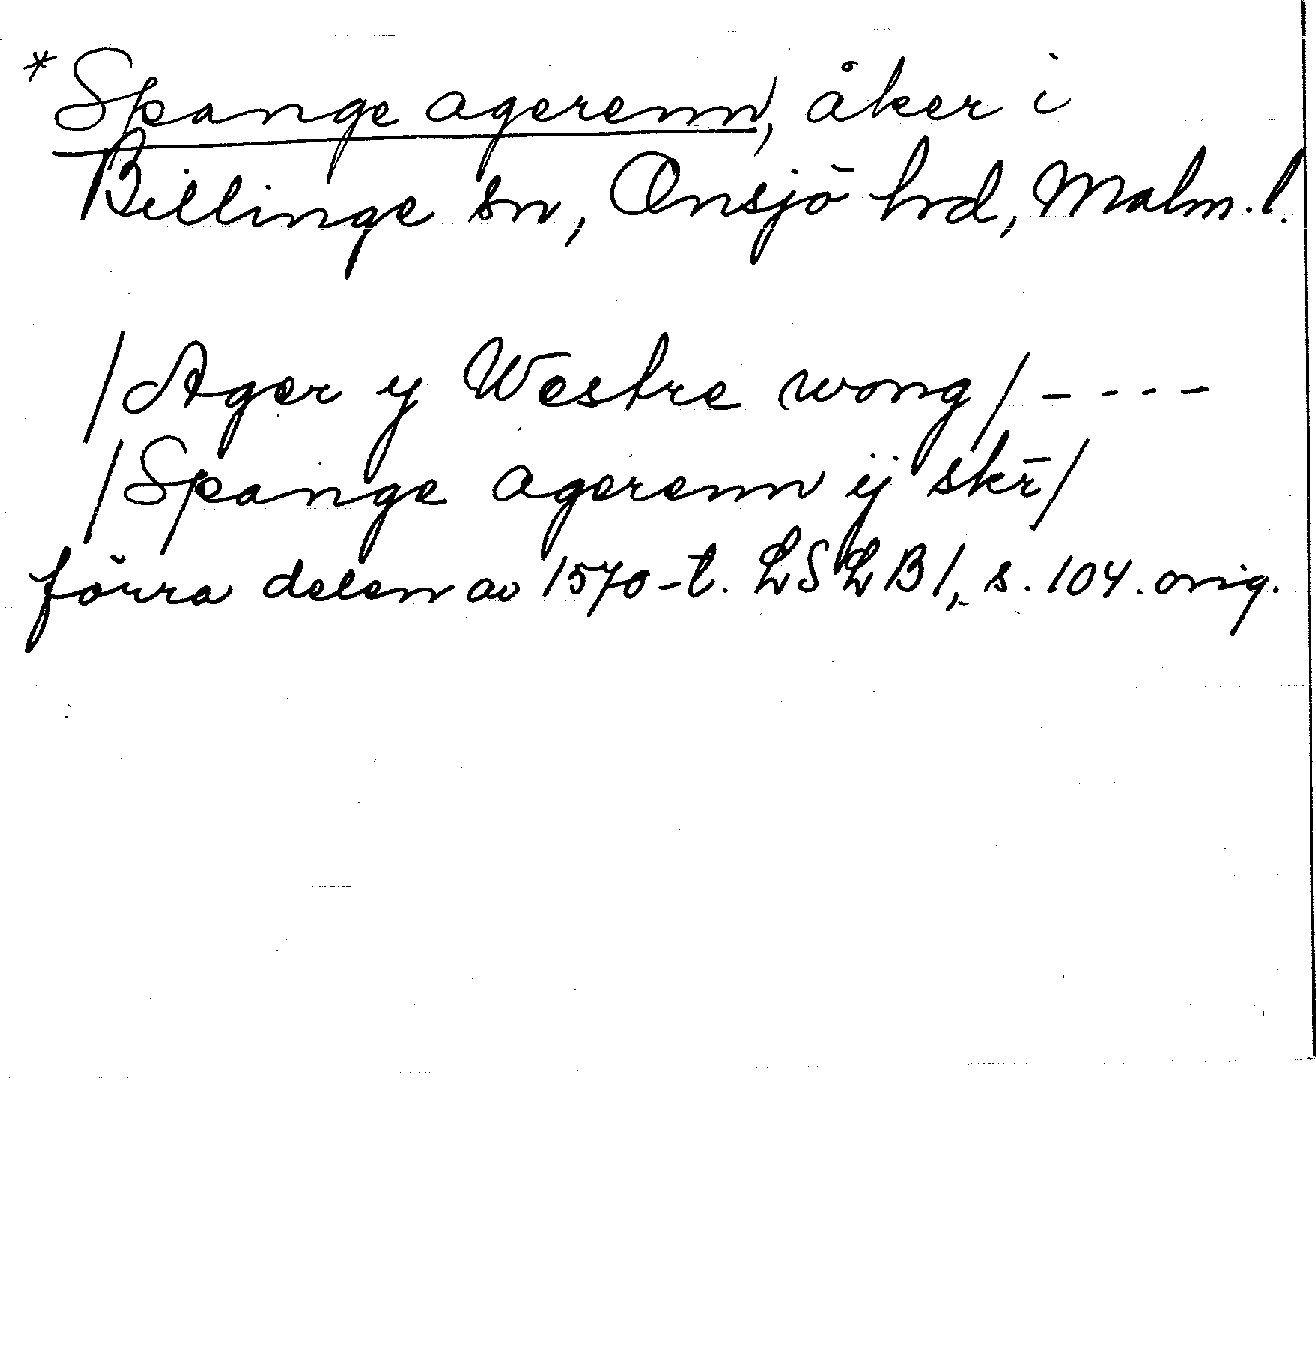 *Spange agerenn, åker i
Billinge sn, Onsjö hrd, Malm. l.
/Ager y Westre wong/ - - - -
/Spange agerenn ij skr̄/
förra delen av 1570-t. LSLB 1, s. 104. orig.